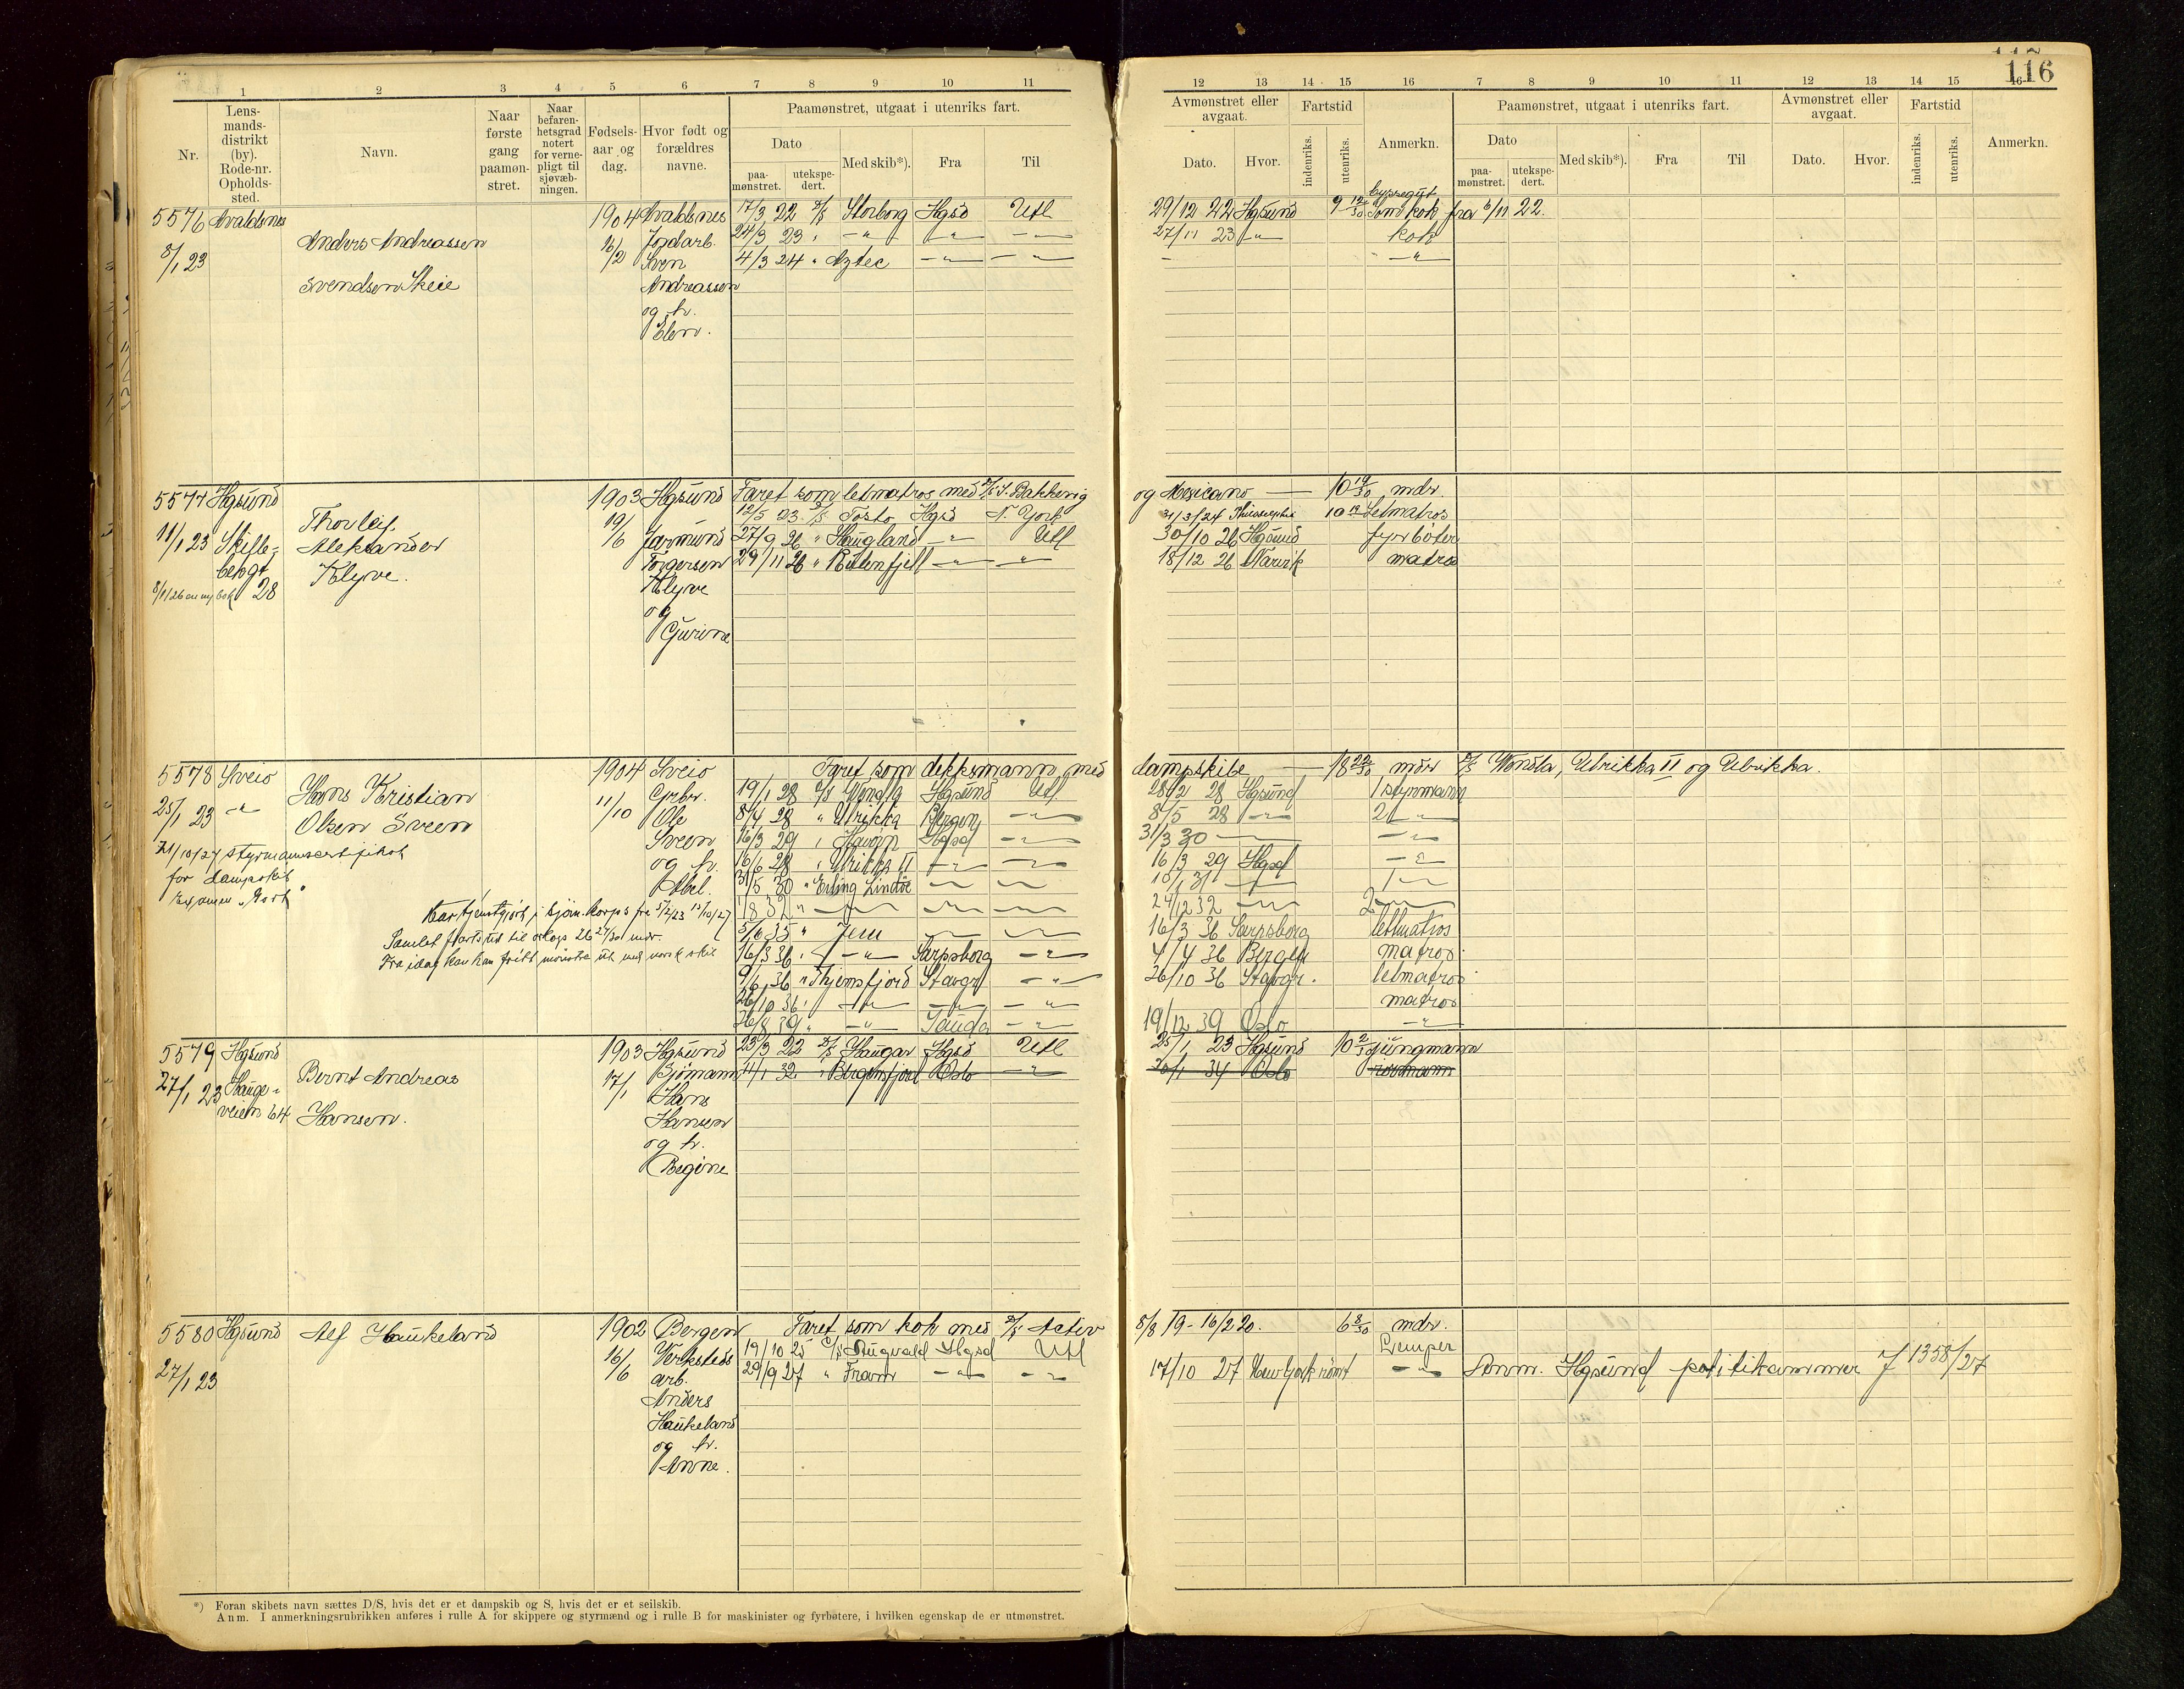 116
1 2 3 4 5 6 7 8 9 10 11
12 13 14 15 16 7 8 9 10 11 12 13 14 15 16
Nr.
Lens-
mands-
distrikt
(by).
Rode-nr.
Opholds-
sted.
Navn.
Naar
første
gang
paamøn-
stret.
Naar
befaren-
hetsgrad
notert
for verne-
pligt til
sjøvæb-
ningen.
Fødsels-
aar og
dag.
Hvor født og
forældres
navne.
Paamønstret, utgaat i utenriks fart.
Dato
paa-
mønstret.
utekspe-
dert.
Med skib*).
Fra
Til
Avmønstret eller
avgaat.
Dato.
Hvor.
Fartstid
indenriks.
utenriks.
Anmerkn.
Paamønstret, utgaat i utenriks fart.
Dato
paa-
mønstret.
utekspe-
dert.
Med skib*).
Fra
Til
Avmønstret eller
avgaat.
Dato.
Hvor.
Fartstid
indenriks.
utenriks.
Anmerkn.
5576 Avaldsnes 1904 Avaldsnes 17/3 22 D/S Storborg Hgsd Utl 29/12 22 Hgsund 9 12/30 Som kok fra 6/11 22.
Byssegut
Anders Andreassen Jordarb. 24/3 23 " -"- -"- -"- 27/11 23 -"- kok
8/1 23 16/2 Sven 4/3 24 " Aztec -"- -"- -"-
Svendsen Skeie Andreassen
og h.
Elen.
5577 Hgsund 1903 Hgsund Faret som letmatros med D/S J. Bakkevig og Mexicano — 10 19/30 mdr.
Thorleif 12/5 23 D/S Tosto Hgsd N. York 31/3/24 10 19 Letmatros
11/1 23 Skifte- Aleksander 19/6 Jarmund 27/9 26 " Haugland -"- Utl 30/10 26 Hgsund fyrbøter
Klyve. Torgersen 29/11 26 " Rutenfjell -"- -"- 18/12 26 Narvik matros
8/1/26 en ny bok 28 Klyve
og
Gurine
5578 Sveio 1904 Sveio Faret som dekksmann med dampskibe — 18 22/30 mdr D/S Wendla, Ulrikka II og Ulrikka.
Hans Kristian Grbr. 19/1 28 D/S Wendla Hgsund Utl. 28/2 28 Hgsund 1 styrmann
25/1 23 -"- Olsen Sveen 11/10 Ole 8/4 28 " Ulrikka Bergen -"- 8/5 28 -"- 2 -"-
Sveen 16/3 29 " Havørn Hgsd -"- 31/3 30 — -"-
21/10/27 styrmannscertifikat og h. 16/6 28 " Ulrikka II -"- -"- 16/3 29 Hgsd -"-
for dampskib Abel. 31/5 30 " Erling Lindøe -"- -"- 10/1 31 -"- 1 -"-
Examen "Godt" 1/8 32 " -"- -"- -"- 24/12 32 -"- 2 -"-
Har tjenstgjort i Sjøm. korps fra 5/2/23 15/10/27
Samlet fartstid til idag 26 27/30 mdr. 3/6 35 " Jem -"- -"- 16/3 36 Sarpsborg letmatros
Fra idag kan han fritt mønstre ut med norsk skib 16/3 36 " -"- Sarpsborg -"- 4/4 36 Bergen matros
9/6 36 " Thjemsfjord Stavgr -"- 26/10 36 Stavgr. letmatros
26/10 36 " -"- -"- -"- matros
26/8 39 " -"- Sauda -"- 19/12 39 Oslo -"-
5579 Hgsund 1903 Hgsund 23/3 22 D/S Haugar Hgsd Utl 25/1 23 Hgsund 10 2/30 jungmann
27/1 23 Hauge- Bernt Andreas 17/1 Sjømann 11/1 32 " Bergensfjord Oslo -"- 20/1 34 Oslo
veien 64 Hansen. Hans
Hansen
og h.
Regine
5580 Hgsund Alf Haukeland 1902 Bergen Faret som kok med D/S Activ 8/8 19 - 16/2 20. 6 8/30 mdr.
16/6 Verksteds 19/10 25 D/S Rugvald Hgsd Utl Lemper
27/1 23 arb. 29/9 27 " Fram -"- -"- 17/10 27 New York rømt -"- Anm. Hgsund politikammer J 1358/27
Anders
Haukeland
og h.
Anne.
*) Foran skibets navn sættes D/S, hvis det er et dampskib og S, hvis det er et seilskib.
Anm. I anmerkningsrubrikken anføres i rulle A for skippere og styrmænd og i rulle B for maskinister og fyrbøtere, i hvilken egenskap de er utmønstret.